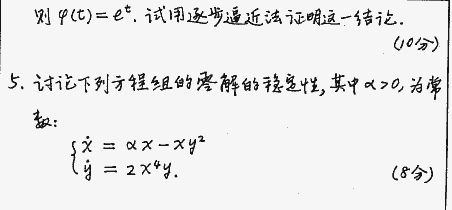 则 φ(t)=e^t. 试用逐步逼近法证明这一结论.
(10分)
5. 讨论下列方程组的零解的稳定性, 其中 α>0, 为常
数:
{ẋ = αx - xy²
ẏ = 2x⁴y.
(8分)